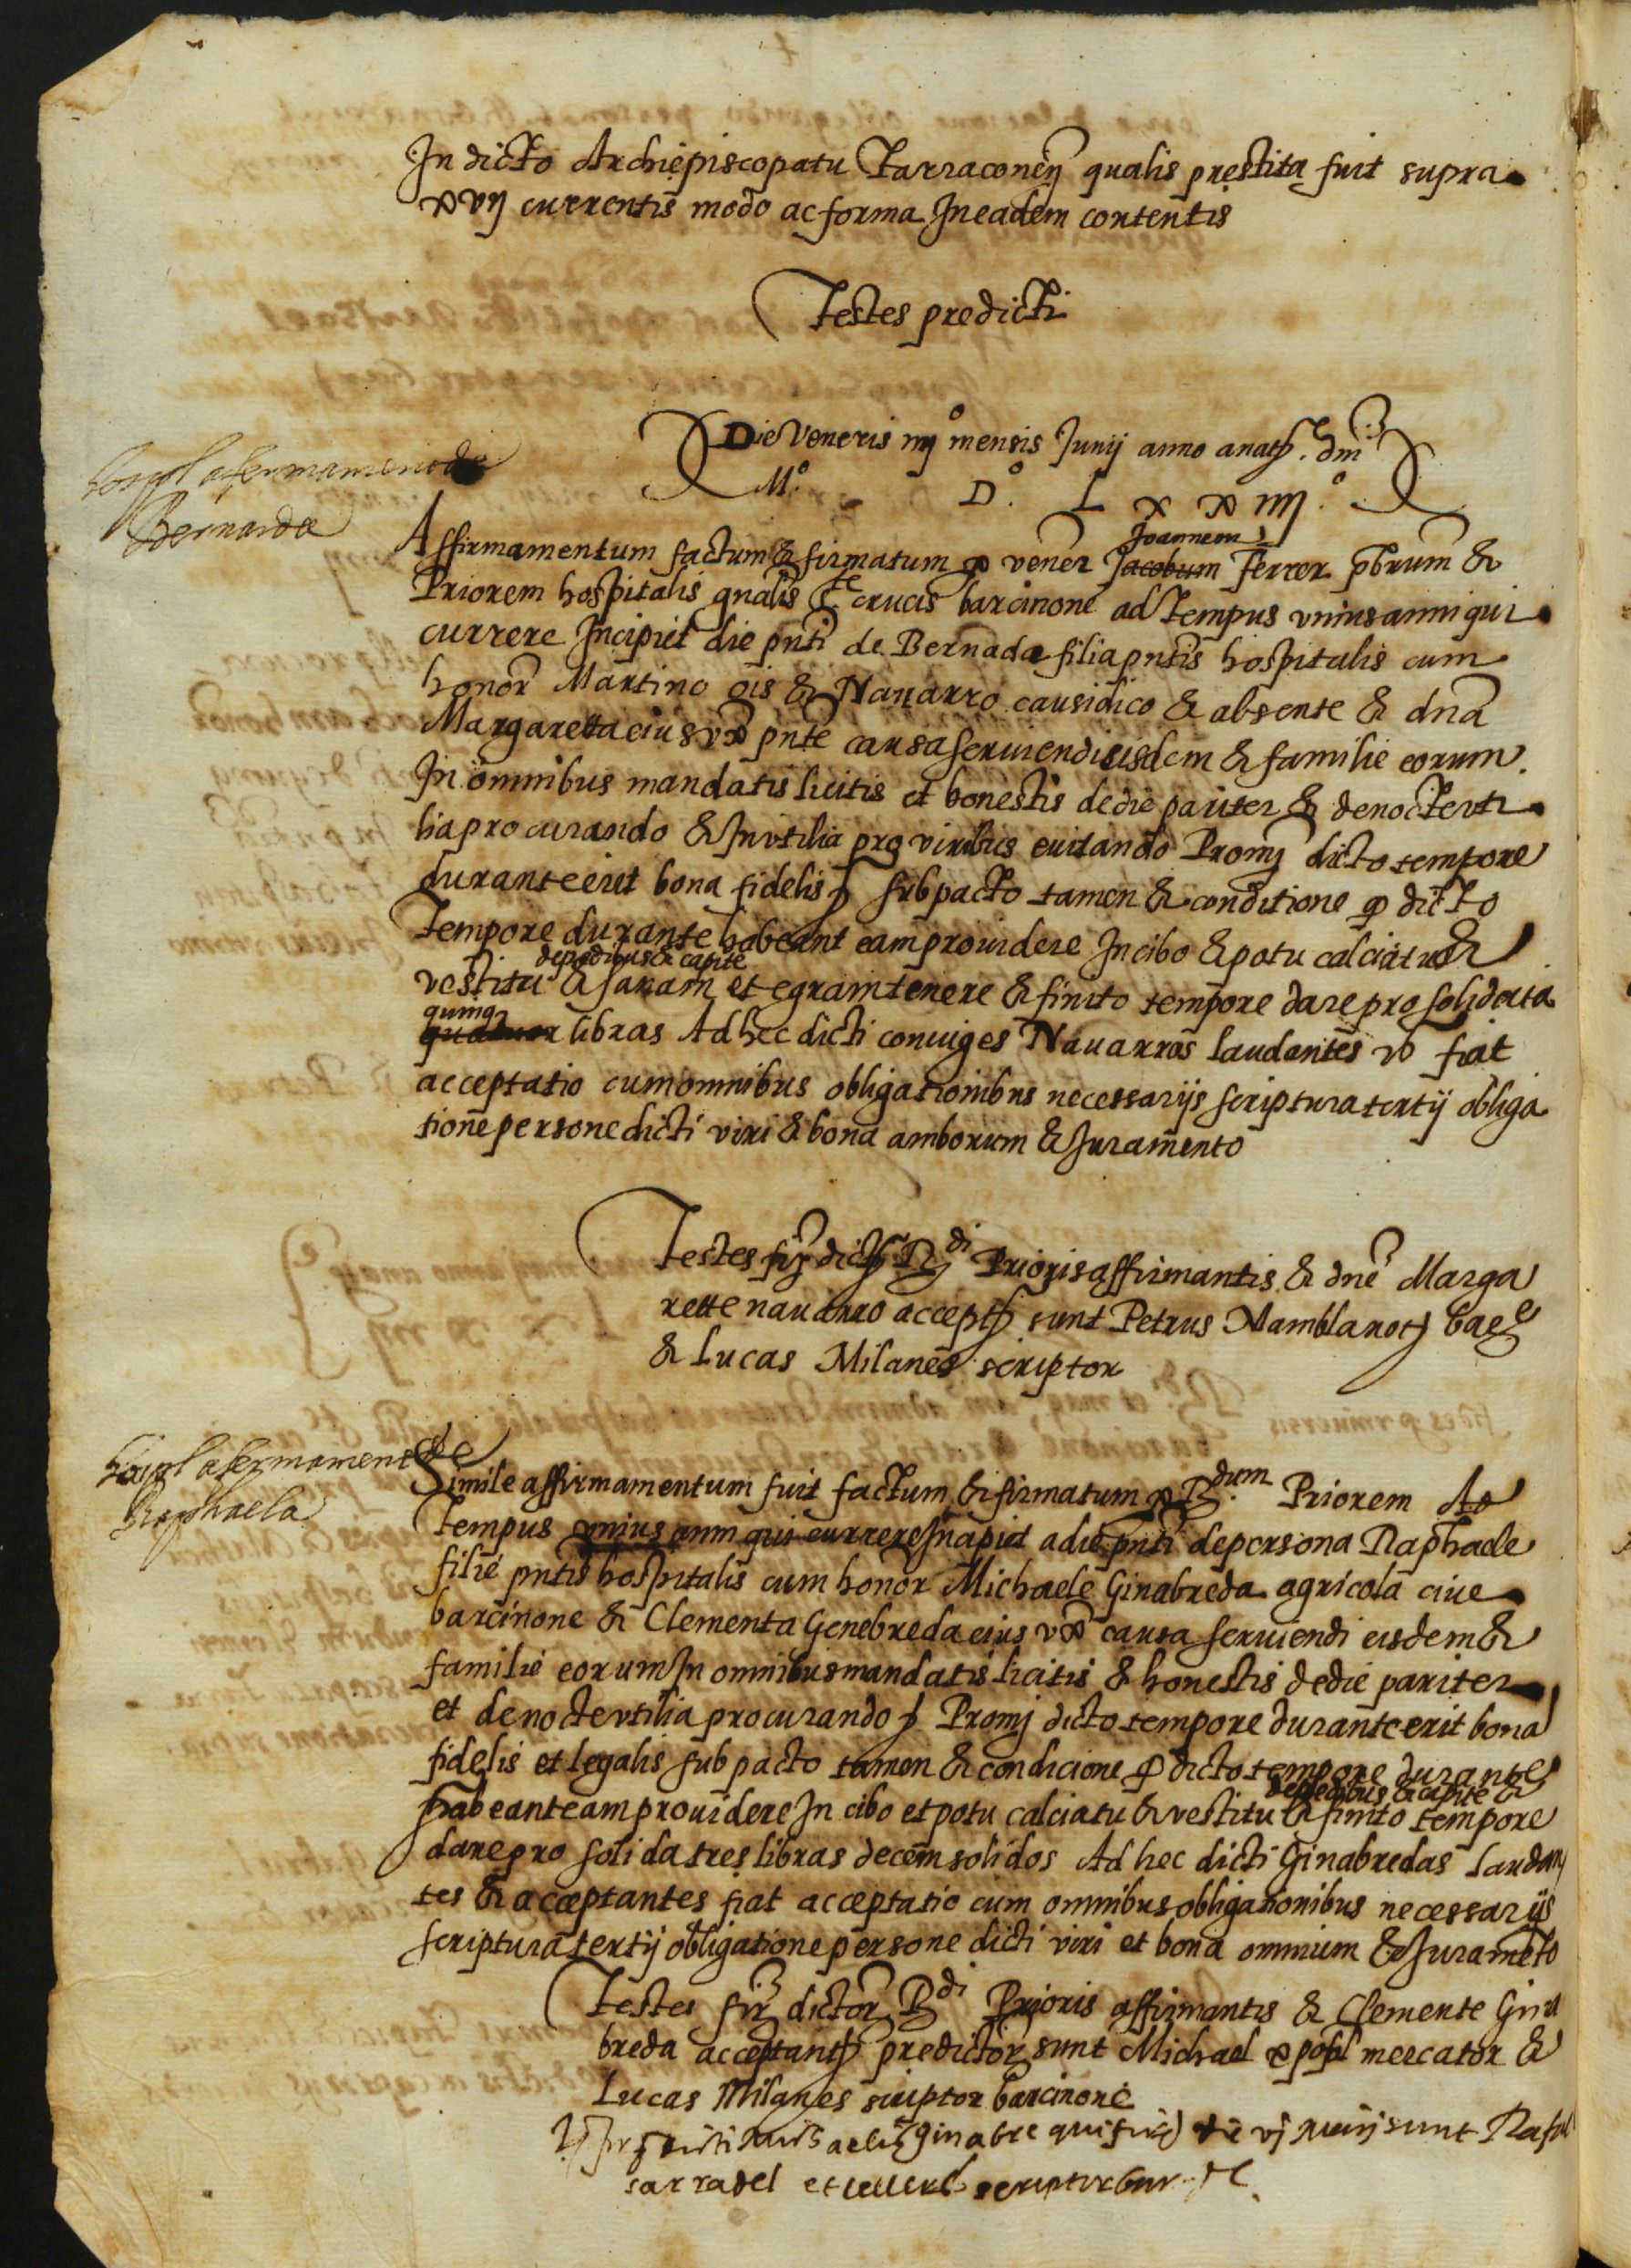 In dicto Archiepiscopatu Tarraconen̄ qualis prestita fuit supra
xvij currentis modo ac forma In eadem contentis
Testes predicti
Die Veneris iiij° mensis Junij anno a nat. dni
M.° D.° L x x iiij.°
hospl afermament de
Bernarda
Joannem
Affirmamentum factum & firmatum p vener Jacobum Ferrer pbrum &
Priorem hospitalis gnalis Ste crucis barcinone ad tempus vnius anni qui
currere Incipiet die pnti de Bernada filia pntis hospitalis cum
honor Martino ois & Nauarro causidico & absente & dna
Margaretta eius vx pnte causa seruiendi eisdem & familie eorum
In omnibus mandatis licitis et honestis de die pariter & de nocte vti
lia procurando & Invtilia pro viribus euitando Promj dicto tempore
durante erit bona fidelis sub pacto tamen & conditione q dicto
Tempore durante habeant eam prouidere In cibo & potu calciatu &
de pedibus & capite
vestitu & sanam et egram tenere & finito tempore dare pro solidata
quinq
quatuor libras Ad hec dicti coniuges Nauarros laudantes fiat
acceptatio cum omnibus obligationibus necessarijs scriptura tertij obliga
tione persone dicti viri & bona amborum & Juramento
Testes dict Rdi Prioris affirmantis & dne Marga
rette nauarro accept sunt Petrus
& Lucas Milanes scriptor
hospl afermament de
Raphaela
Simile affirmamentum fuit factum & firmatum p R.dum Priorem Ad
Tempus vnius anni qui currere Inapiet a die pnti de persona Raphaele
filie pntis hospitalis cum honor Michaele Ginabreda agricola ciue
barcinone & Clementa Genebreda eius vx causa seruiendi eisdem &
familie eorum In omnibus mandatis licitis & honestis de die pariter
et de nocte vtilia procurando Promj dicto tempore durante erit bona
fidelis et legalis sub pacto tamen & condicione q dicto tempore durante
de pedibus & capite &
habeant eam prouidere In cibo et potu calciatu & vestitu & finito tempore
dare pro solida tres libras decem solidos Ad hec dicti Ginabredas laudan
tes & acceptantes fiat acceptatio cum omnibus obligationibus necessarijs
scriptura tertij obligatione persone dicti viri et bona omnium & Jurameto
Testes fir dictor Rdi Prioris affirmantis & Clemente Gina
breda acceptant predictor sunt Michael mercator &
Lucas Milanes scriptor barcinone
dicti ginabre die vj sunt
sarradel et